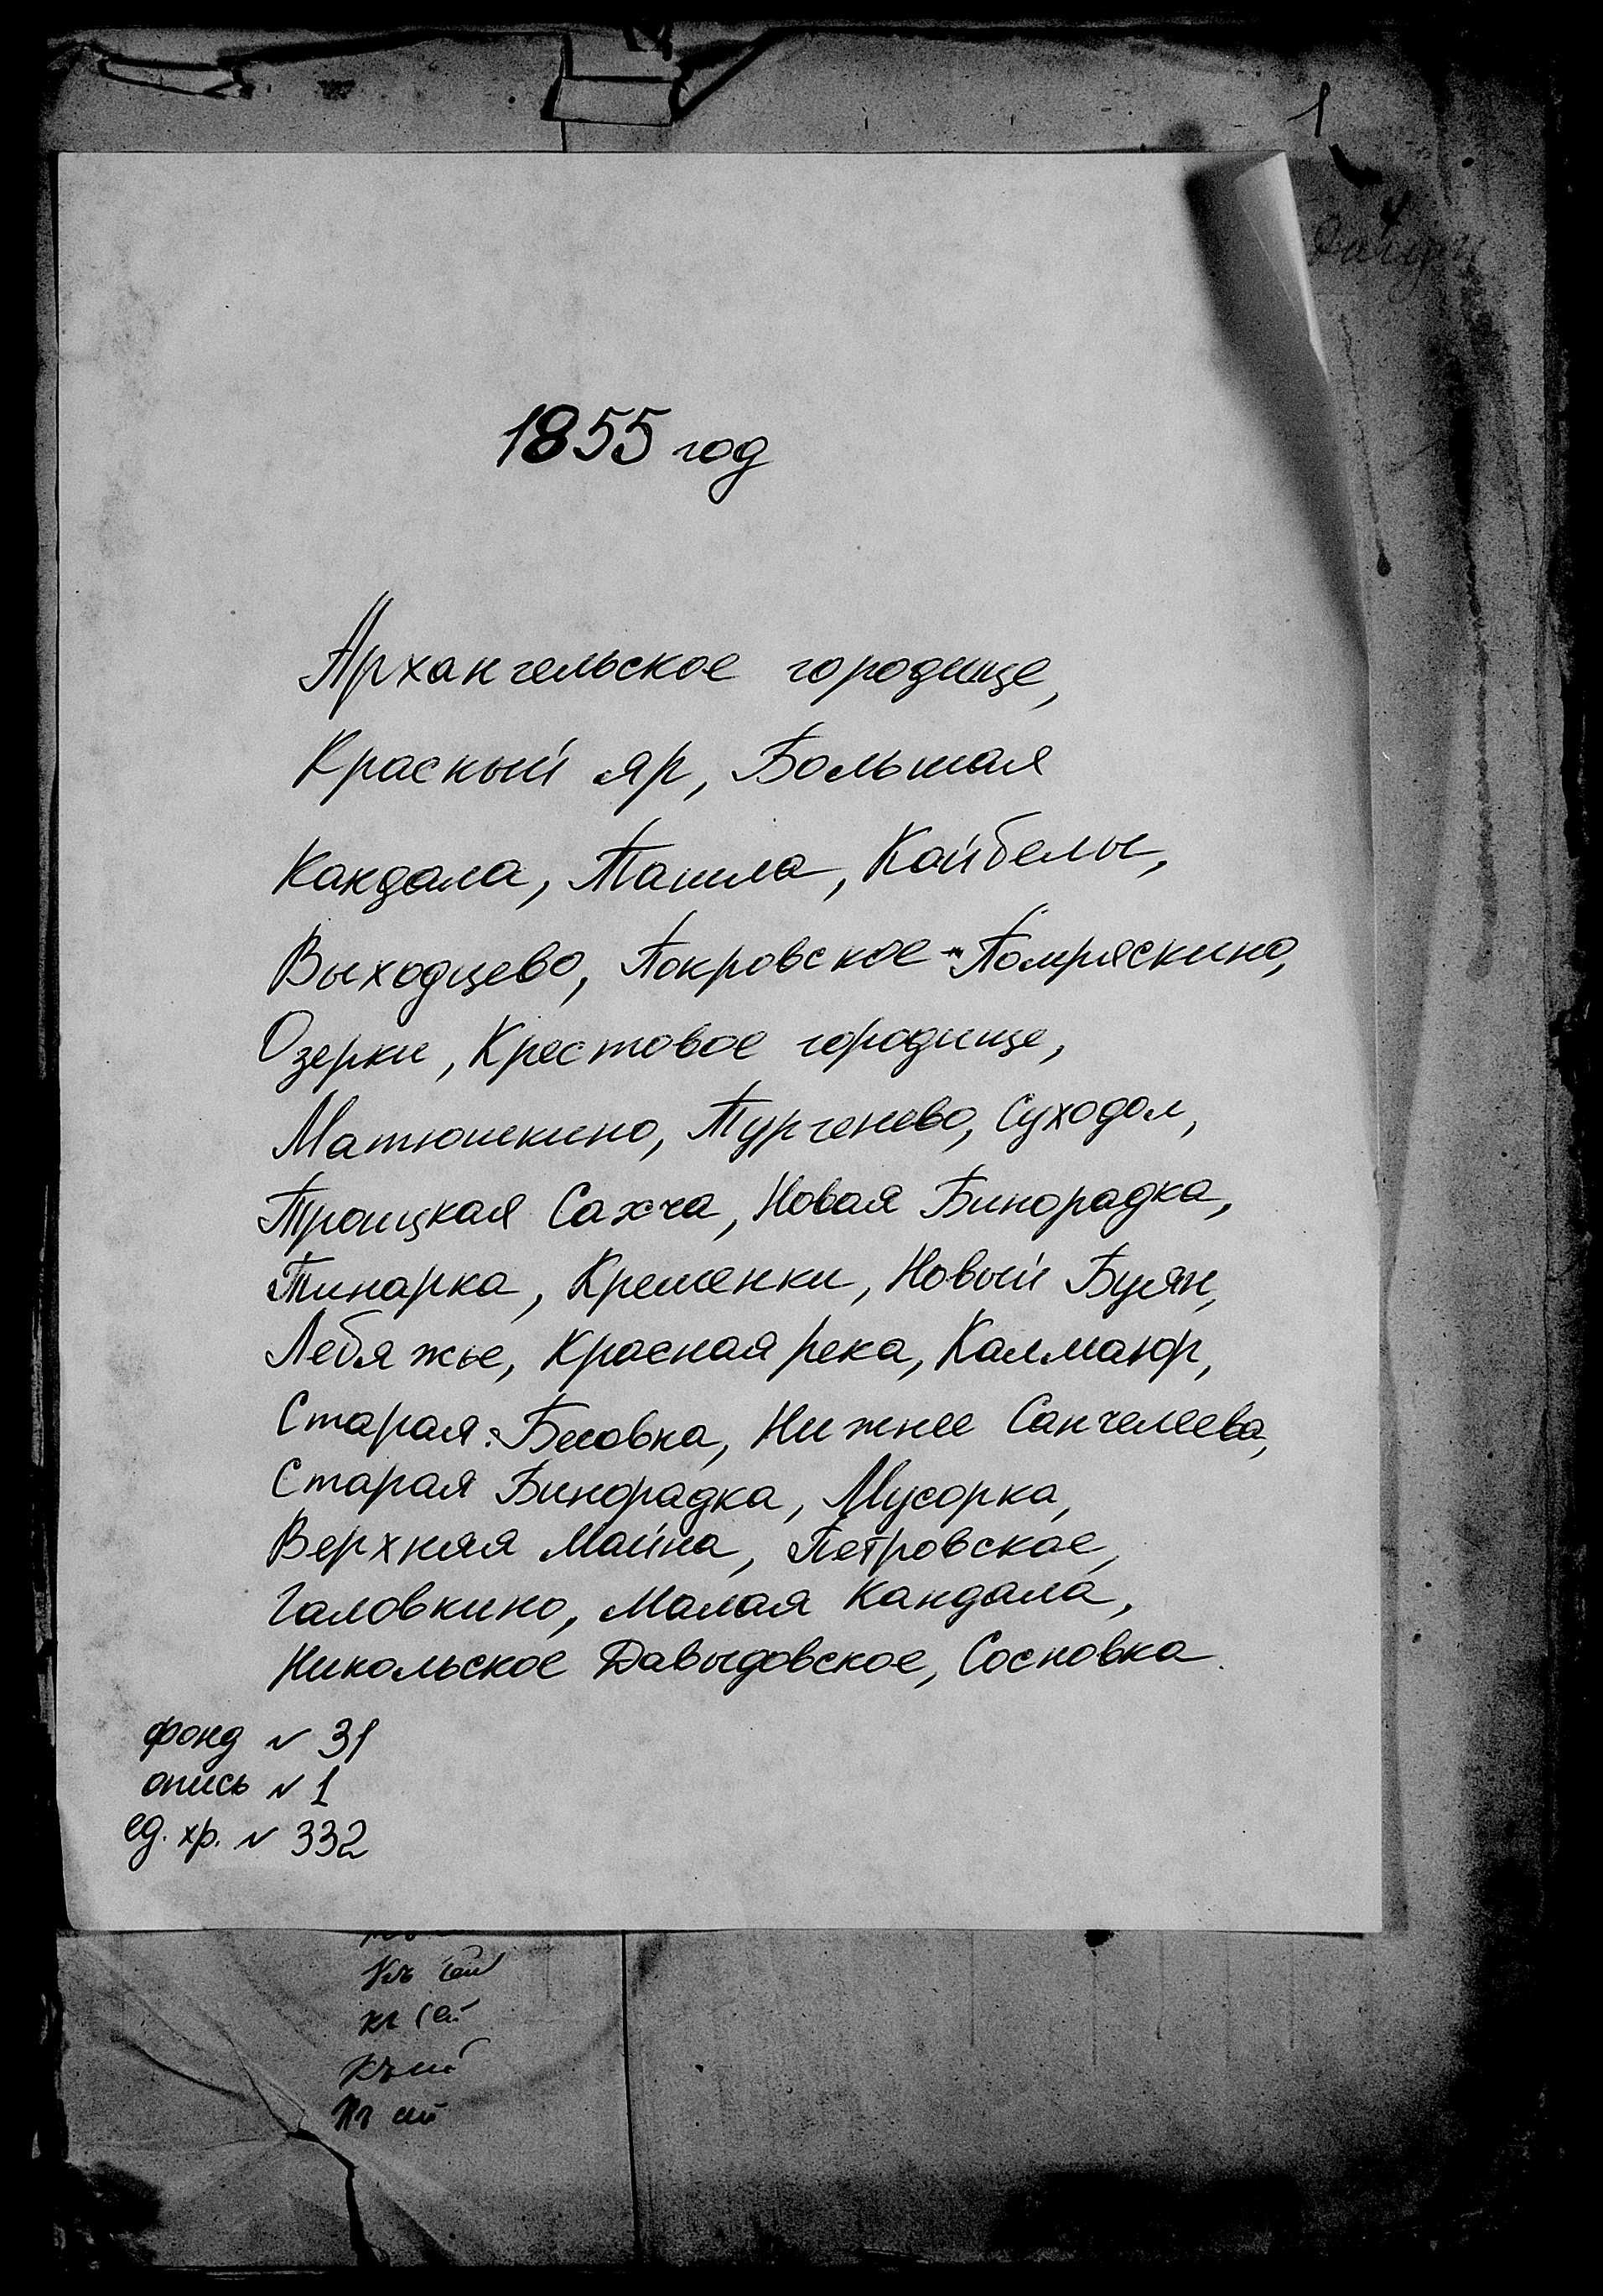 1
1855 год
Архангельское городище,
Красный яр, Большая
Кандала, Ташла, Кайбелы,
Выходцево, Покровское-Помряскино,
Озерки, Крестовое городище,
Матюшкино, Тургенево, Суходол,
Троицкая Сахча, Новая Бинорадка,
Тинарка, Кременки, Новый Буян,
Лебяжье, Красная река, Калмаюр,
Старая Бесовка, Нижнее Санчелеево,
Старая Бинорадка, Мусорка,
Верхняя Майна, Петровское,
Головкино, Малая Кандала,
Никольское Давыдовское, Сосновка.
фонд N 31
опись N 1
ед. хр. N 332